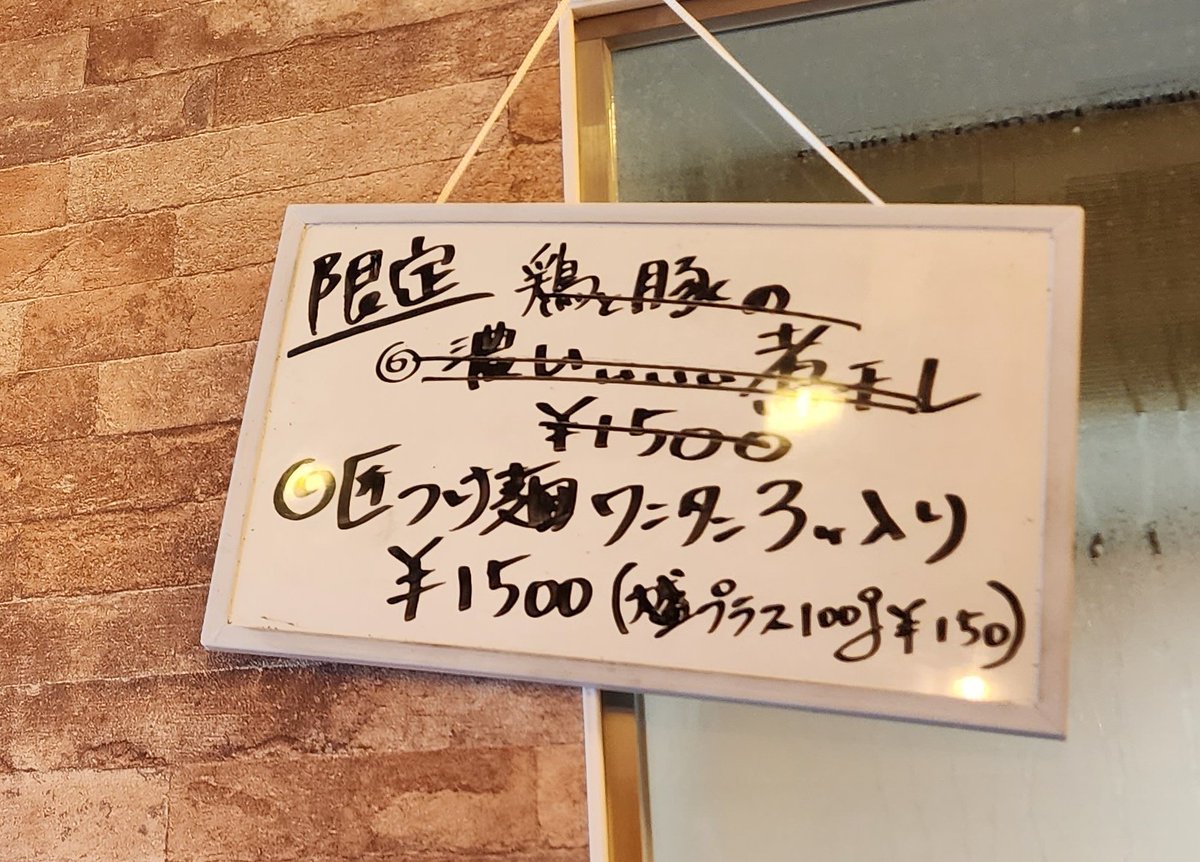 限定 鶏と豚の
⑥濃い……煮干し
¥1500
○匠つけ麺ワンタン3ヶ入り
¥1500(大盛プラス100g¥150)